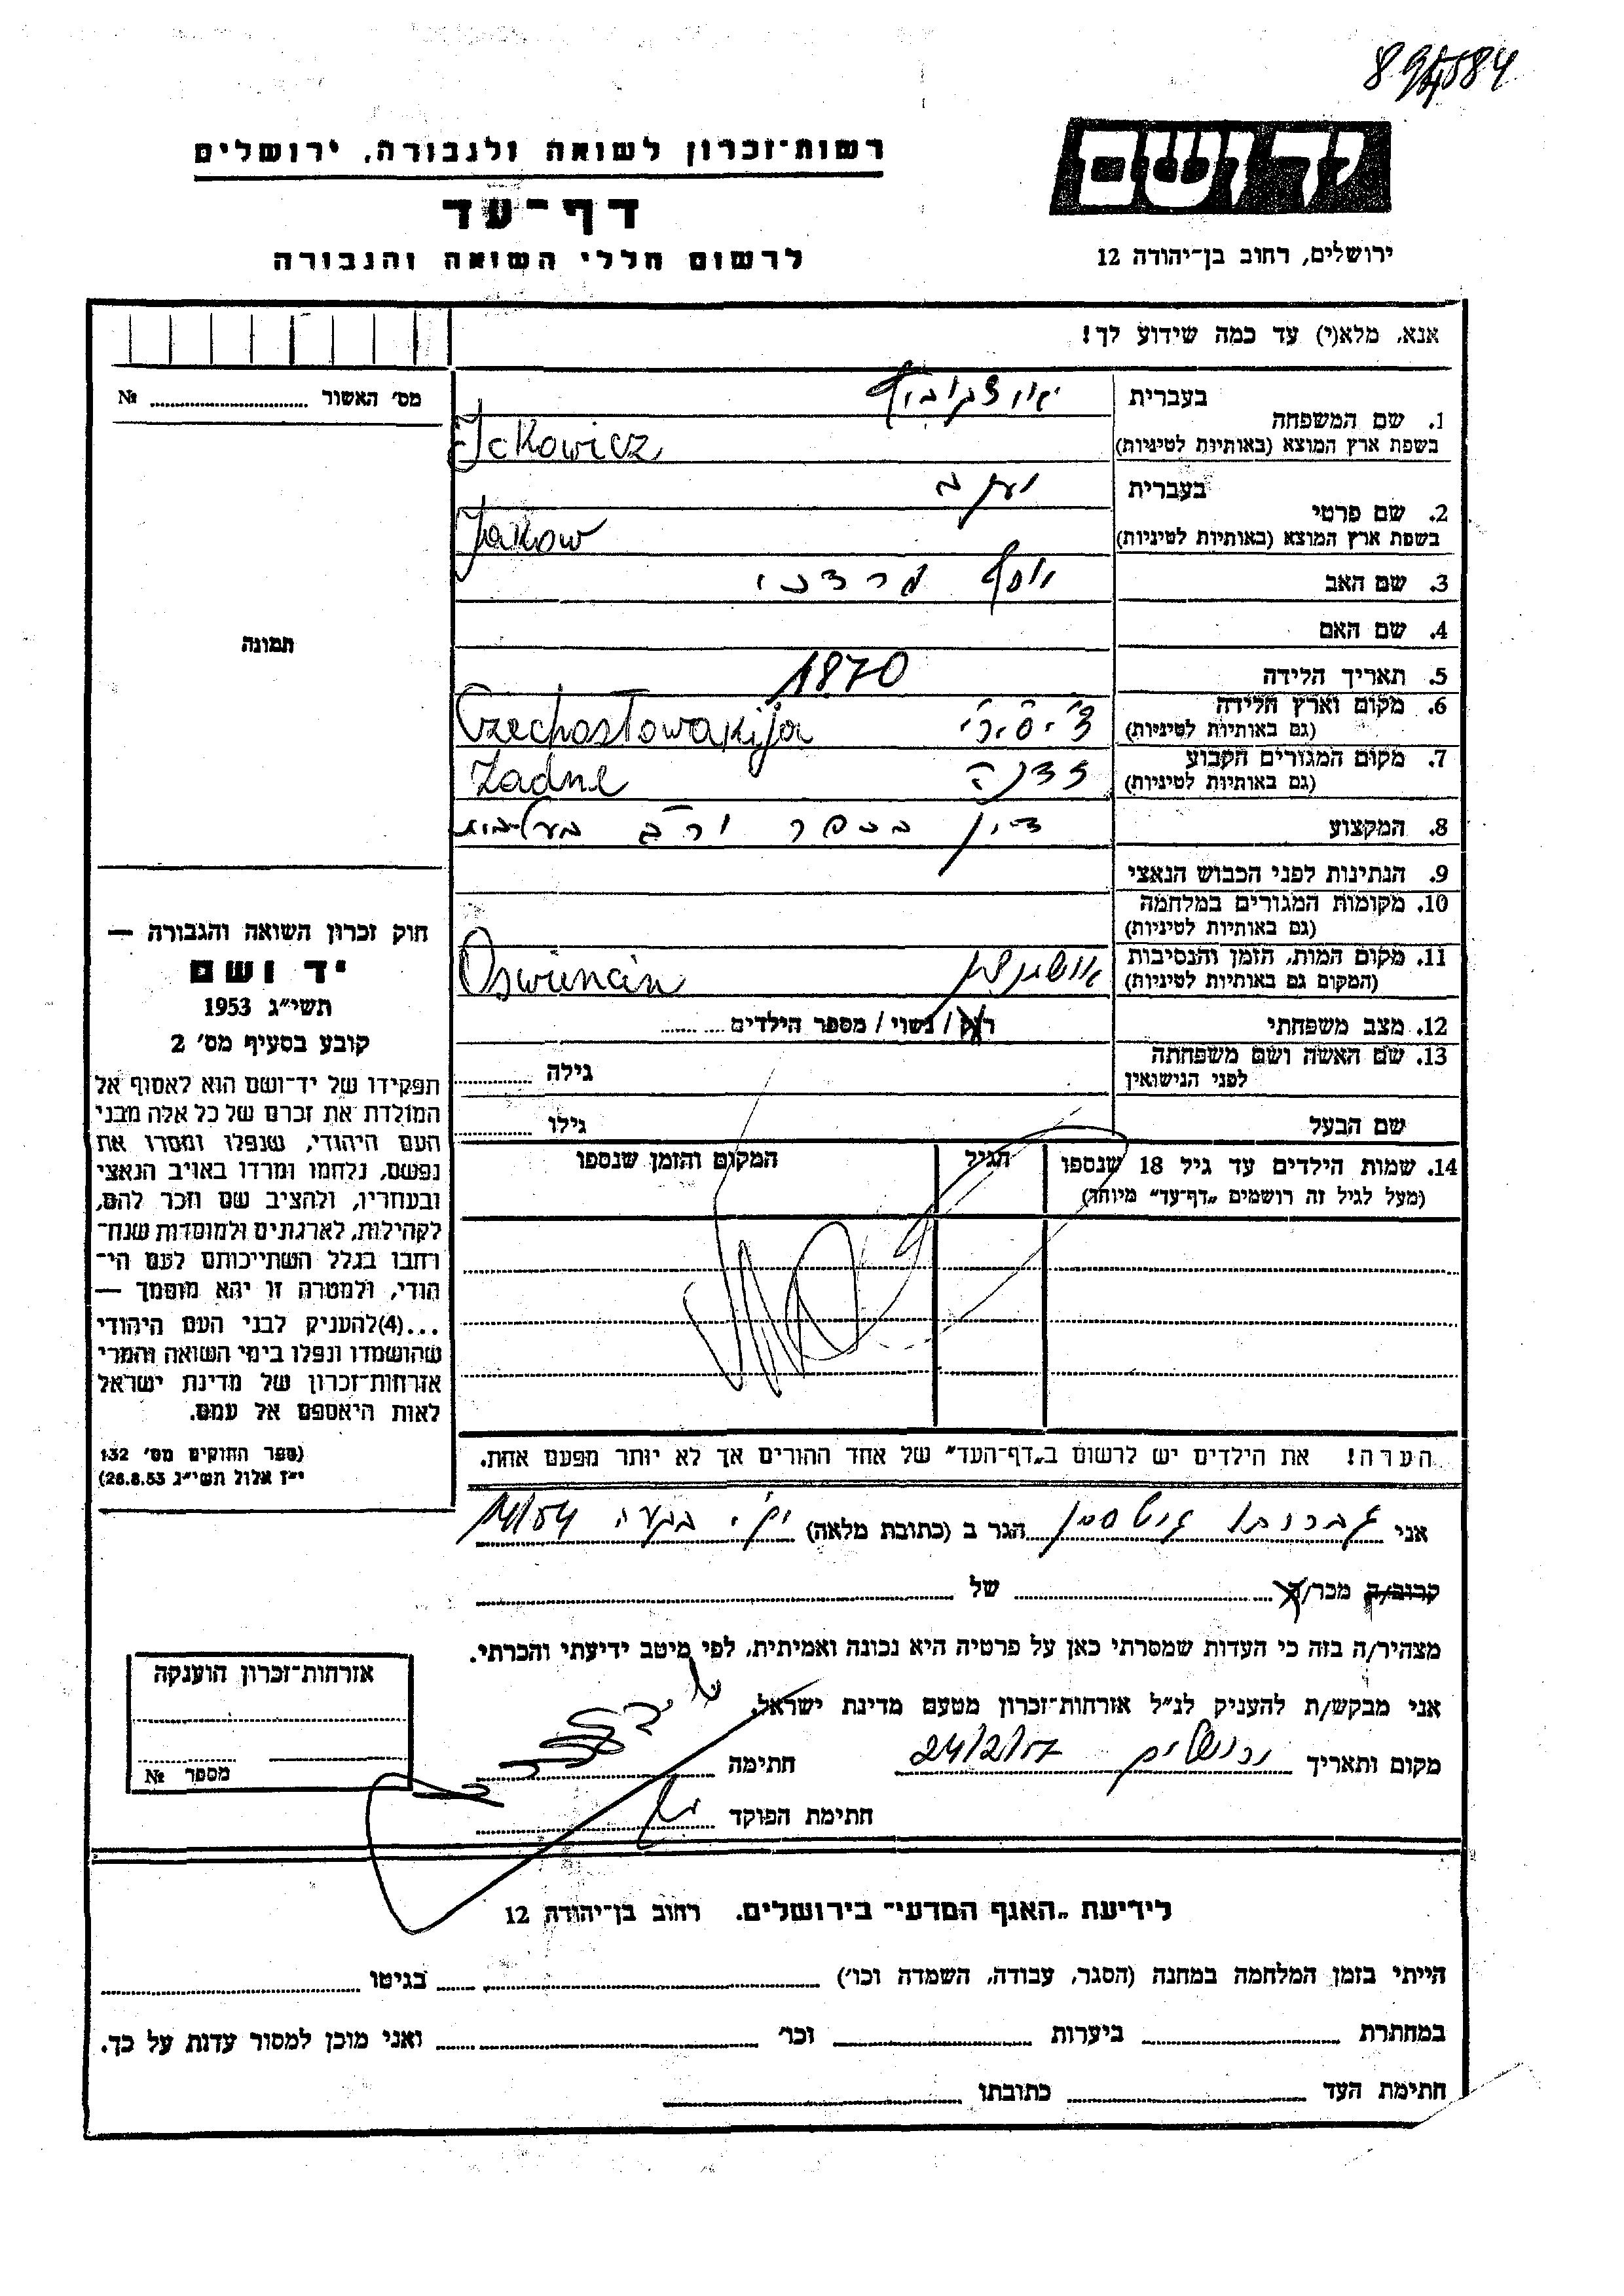 894584
רשות־זכרון לשואה ולגבורה, ירושלים
יד ושם
דף־עד
לרשום חללי השואה והגבורה
ירושלים, רחוב בן־יהודה 12
אנא, מלא(י) עד כמה שידוע לך!
מס׳ האשור № 
בעברית
1. שם המשפחה
בשפת ארץ המוצא (באותיות לטיניות) Ickowicz
בעברית יעקב
2. שם פרטי
בשפת ארץ המוצא (באותיות לטיניות) Jakow
3. שם האב יוסף מרדכי
4. שם האם
תמונה
5. תאריך הלידה 1870
6. מקום וארץ הלידה
(גם באותיות לטיניות) Czechosłowakija
7. מקום המגורים הקבוע
(גם באותיות לטיניות) זדנה Zadne
8. המקצוע דיין בכפר ורב
9. הנתינות לפני הכבוש הנאצי
10. מקומות המגורים במלחמה
(גם באותיות לטיניות)
11. מקום המות, הזמן והנסיבות
(המקום גם באותיות לטיניות) Oswiencin
12. מצב משפחתי רוק / נשוי / מספר הילדים
13. שם האשה ושם משפחתה
לפני הנישואין גילה
שם הבעל גילו
14. שמות הילדים עד גיל 18 שנספו הגיל המקום והזמן שנספו
(מעל לגיל זה רושמים „דף־עד” מיוחד)
הערה! את הילדים יש לרשום ב„דף־העד” של אחד ההורים אך לא יותר מפעם אחת.
חוק זכרון השואה והגבורה —
יד ושם
תשי״ג 1953
קובע בסעיף מס׳ 2
תפקידו של יד־ושם הוא לאסוף אל
המולדת את זכרם של כל אלה מבני
העם היהודי, שנפלו ומסרו את
נפשם, נלחמו ומרדו באויב הנאצי
ובעוזריו, ולהציב שם וזכר להם,
לקהילות, לארגונים ולמוסדות שנח־
רבו בגלל השתייכותם לעם הי־
הודי, ולמטרה זו יהא מוסמך —
...(4)להעניק לבני העם היהודי
שהושמדו ונפלו בימי השואה והמרי
אזרחות־זכרון של מדינת ישראל
לאות היאספם אל עמם.
(ספר החוקים מס׳ 132
י״ז אלול תשי״ג 26.8.53)
אני הגר ב (כתובת מלאה)
קרוב/ה מכר/ה של
מצהיר/ה בזה כי העדות שמסרתי כאן על פרטיה היא נכונה ואמיתית, לפי מיטב ידיעתי והכרתי.
אני מבקש/ת להעניק לנ״ל אזרחות־זכרון מטעם מדינת ישראל.
מקום ותאריך ירושלים חתימה
חתימת הפוקד
אזרחות־זכרון הוענקה
מספר №
לידיעת „האגף המדעי״ בירושלים. רחוב בן־יהודה 12
הייתי בזמן המלחמה במחנה (הסגר, עבודה, השמדה וכו׳) בגיטו
במחתרת ביערות וכו׳ ואני מוכן למסור עדות על כך.
חתימת העד כתובתו